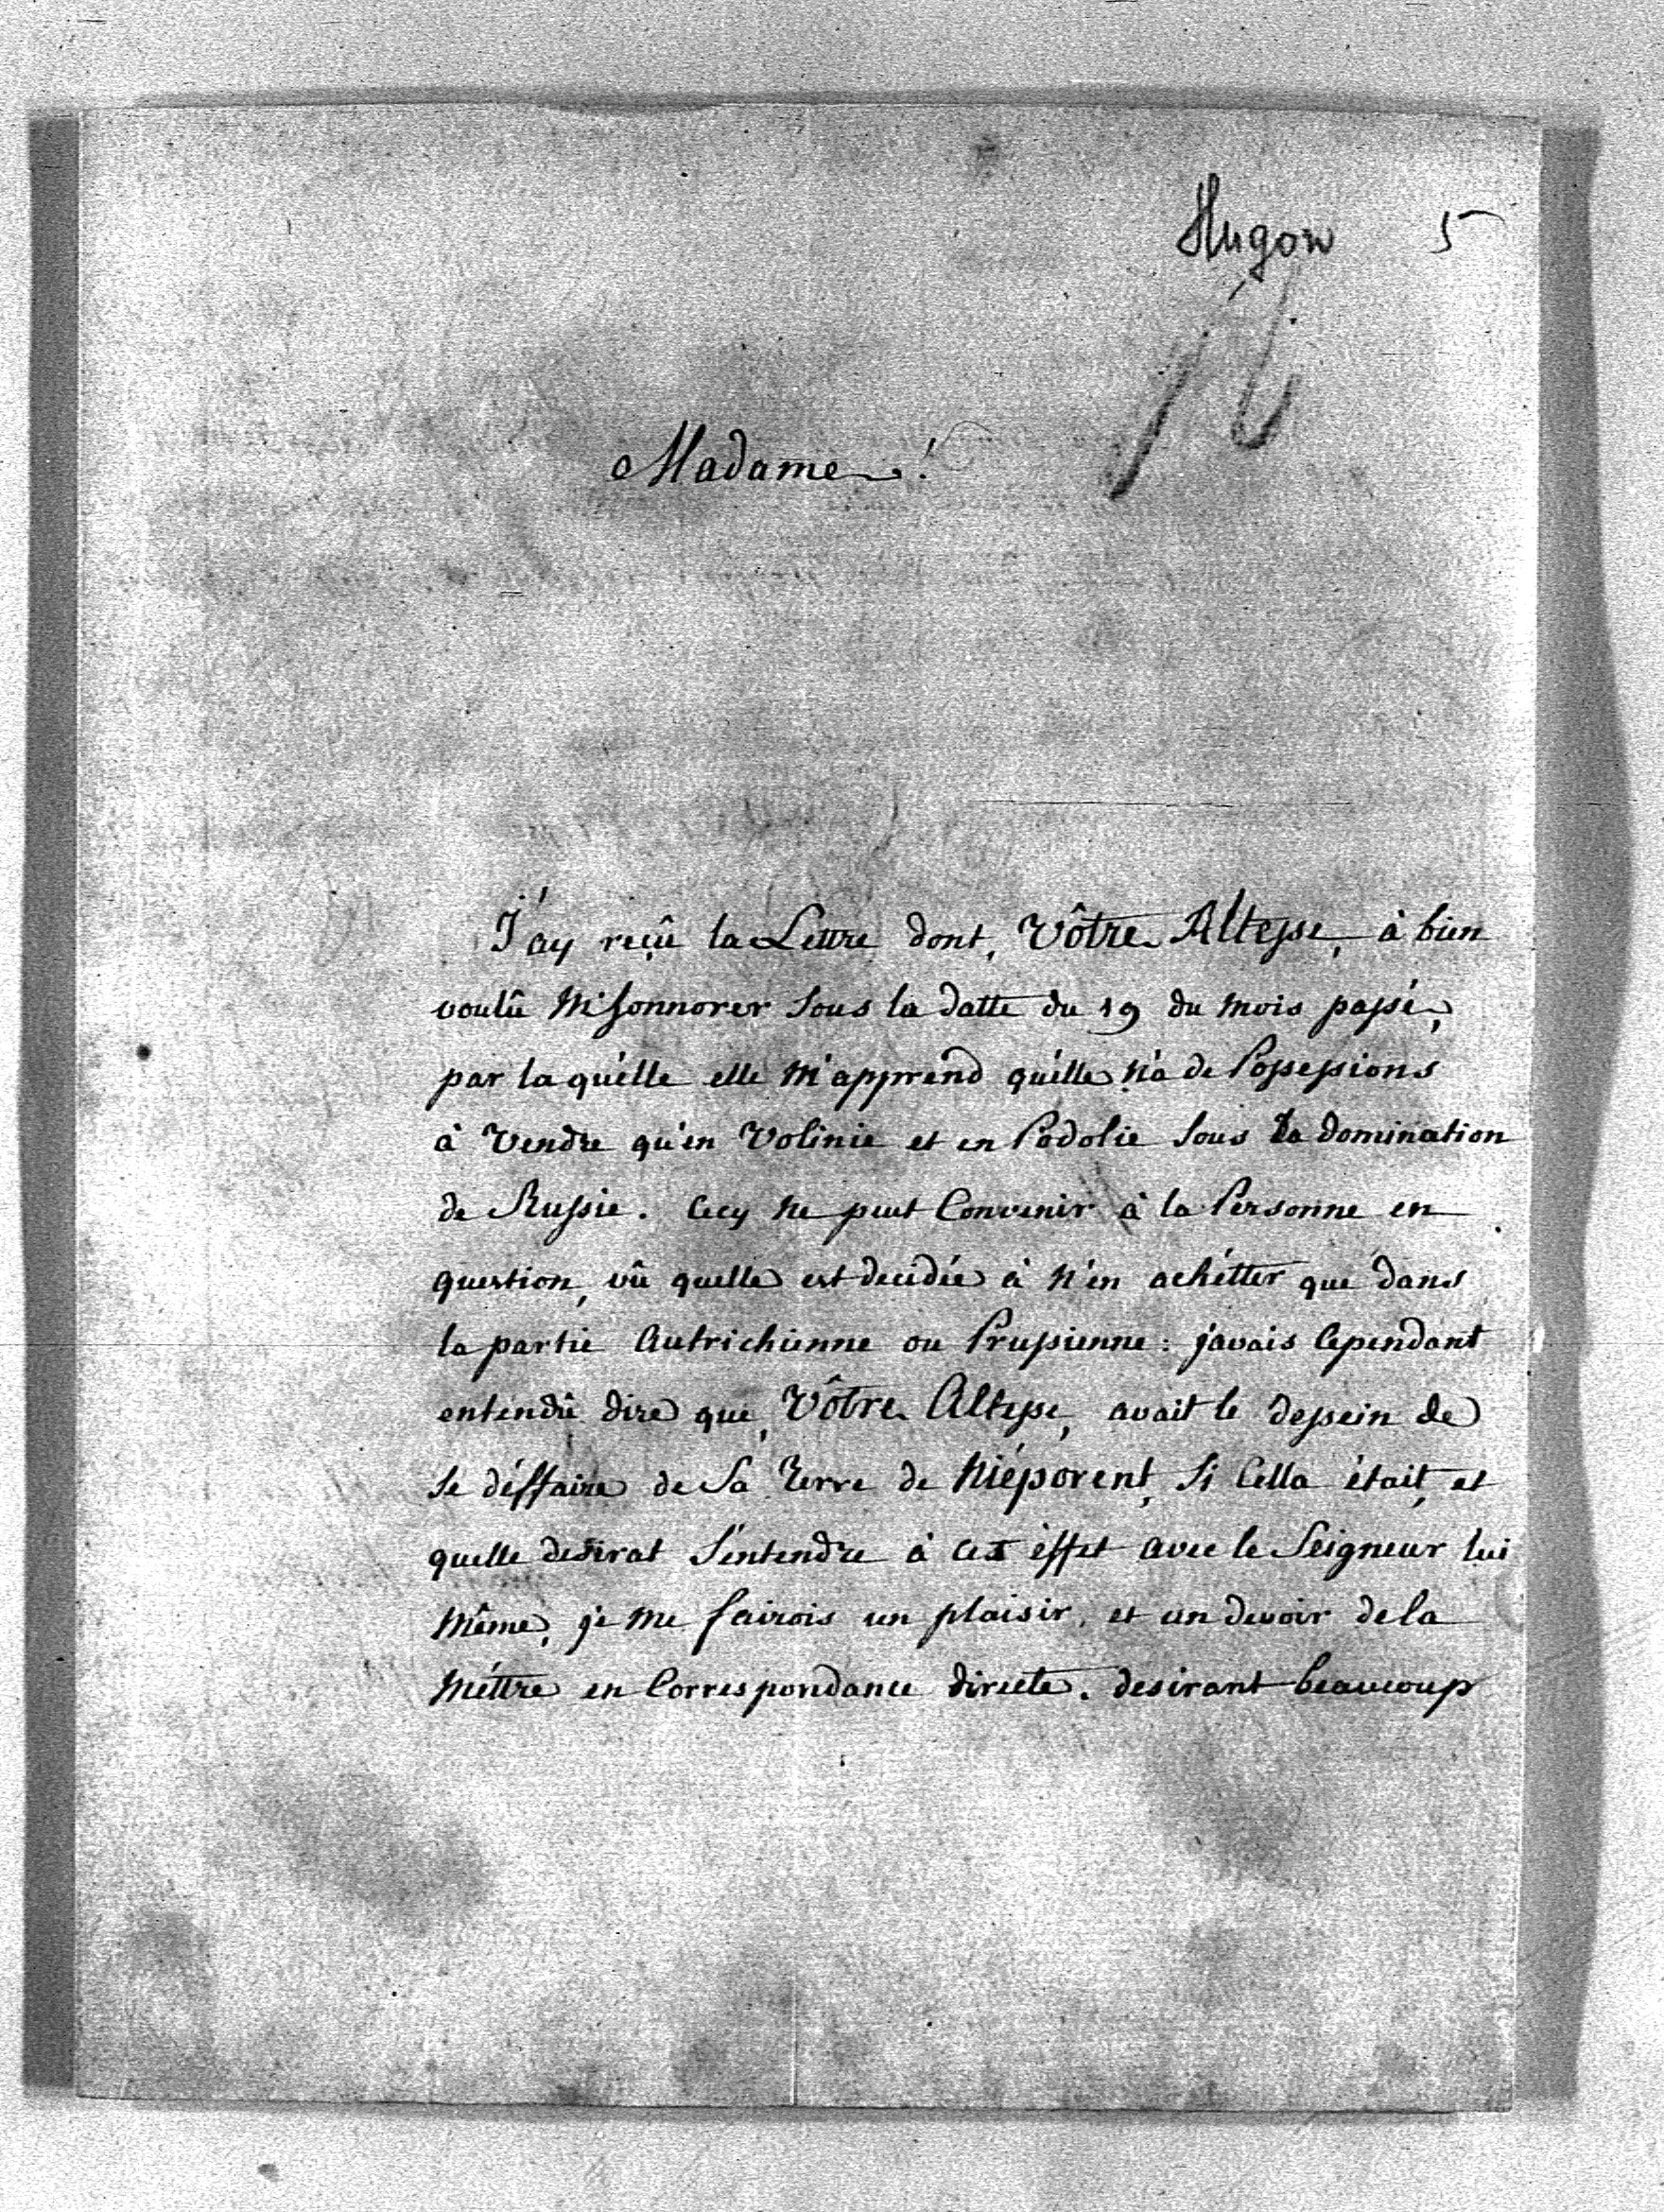 Hugon 5
Madame!
J'ay reçû la Lettre dont, Vôtre Altesse, à bien
voulû M'honnorer Sous la datte du 19 du mois passé,
par la qu'elle elle M'apprend qu'elle n'a de Possessions
à Vendre qu'en Volinie et en Podolie Sous La domination
de Russie. Cecy ne peut Convenir à la Personne en
question, vû quelle est decidée à N'en achétter que dans
la partie Autrichienne ou Prussienne: j'avais Cependant
entendû dire que, Vôtre Altesse, avait le dessein de
Se déffaire de Sa Terre de Niéporent, Si Cella était, et
quelle desirat S'entendre à cet éffet avec le Seigneur lui
Même, je me fairois un plaisir, et un devoir de la
Méttre en Correspondance directe. desirant beaucoup